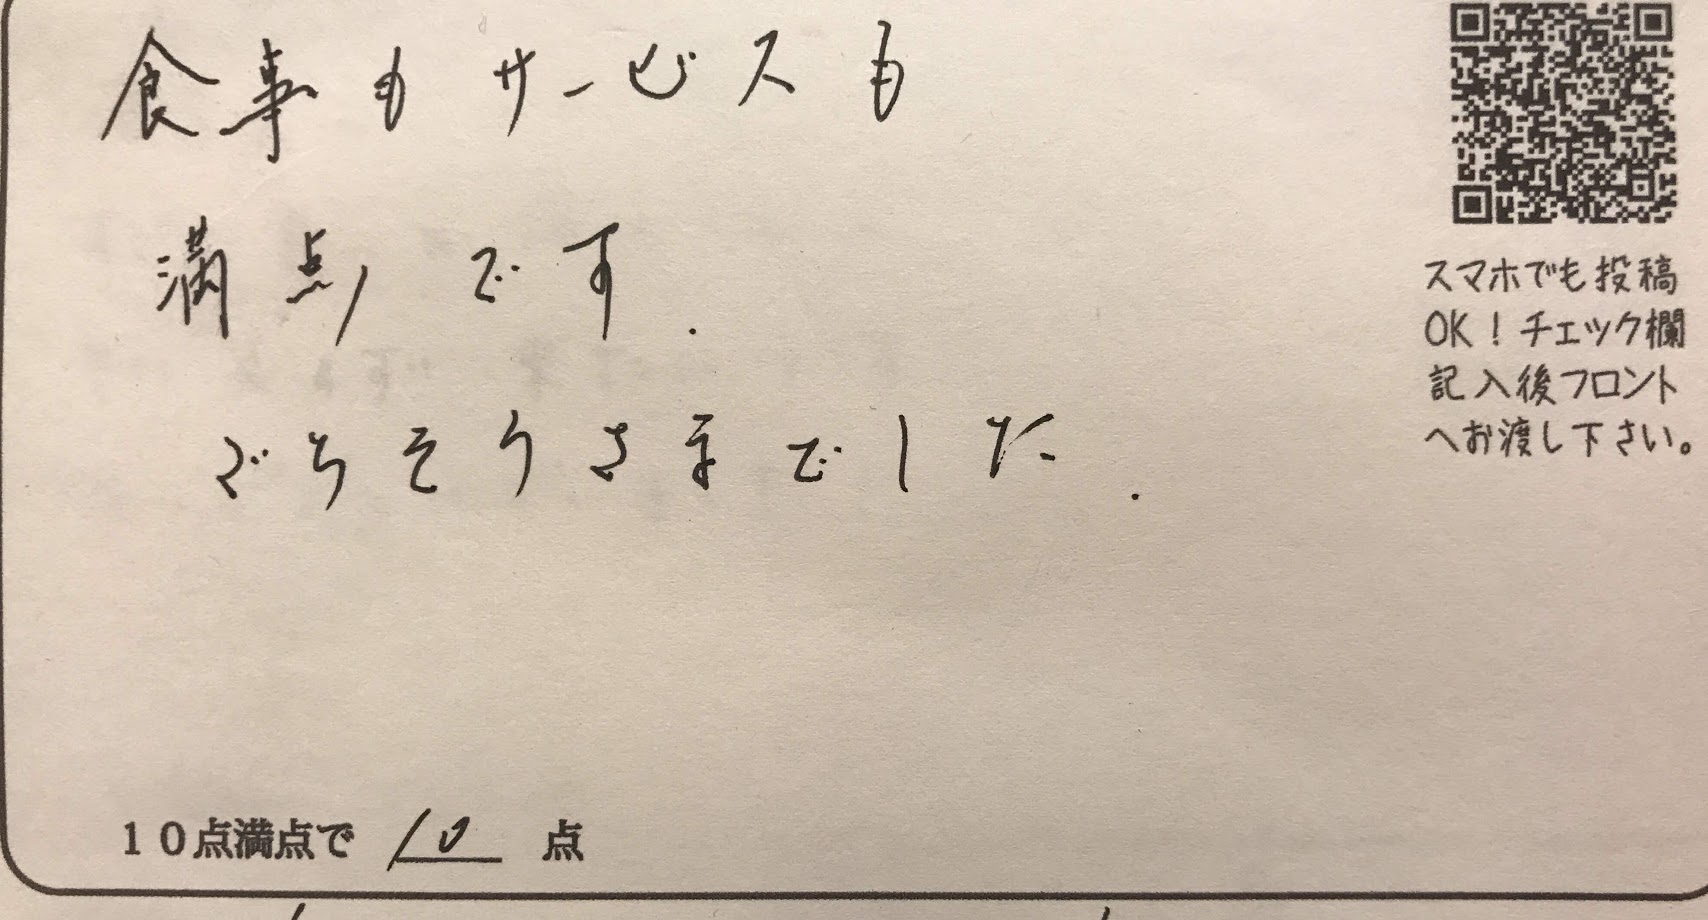 食事もサービスも
満点です.
ごちそうさまでした.
スマホでも投稿
OK!チェック欄
記入後フロント
へお渡し下さい。
10点満点で 10 点